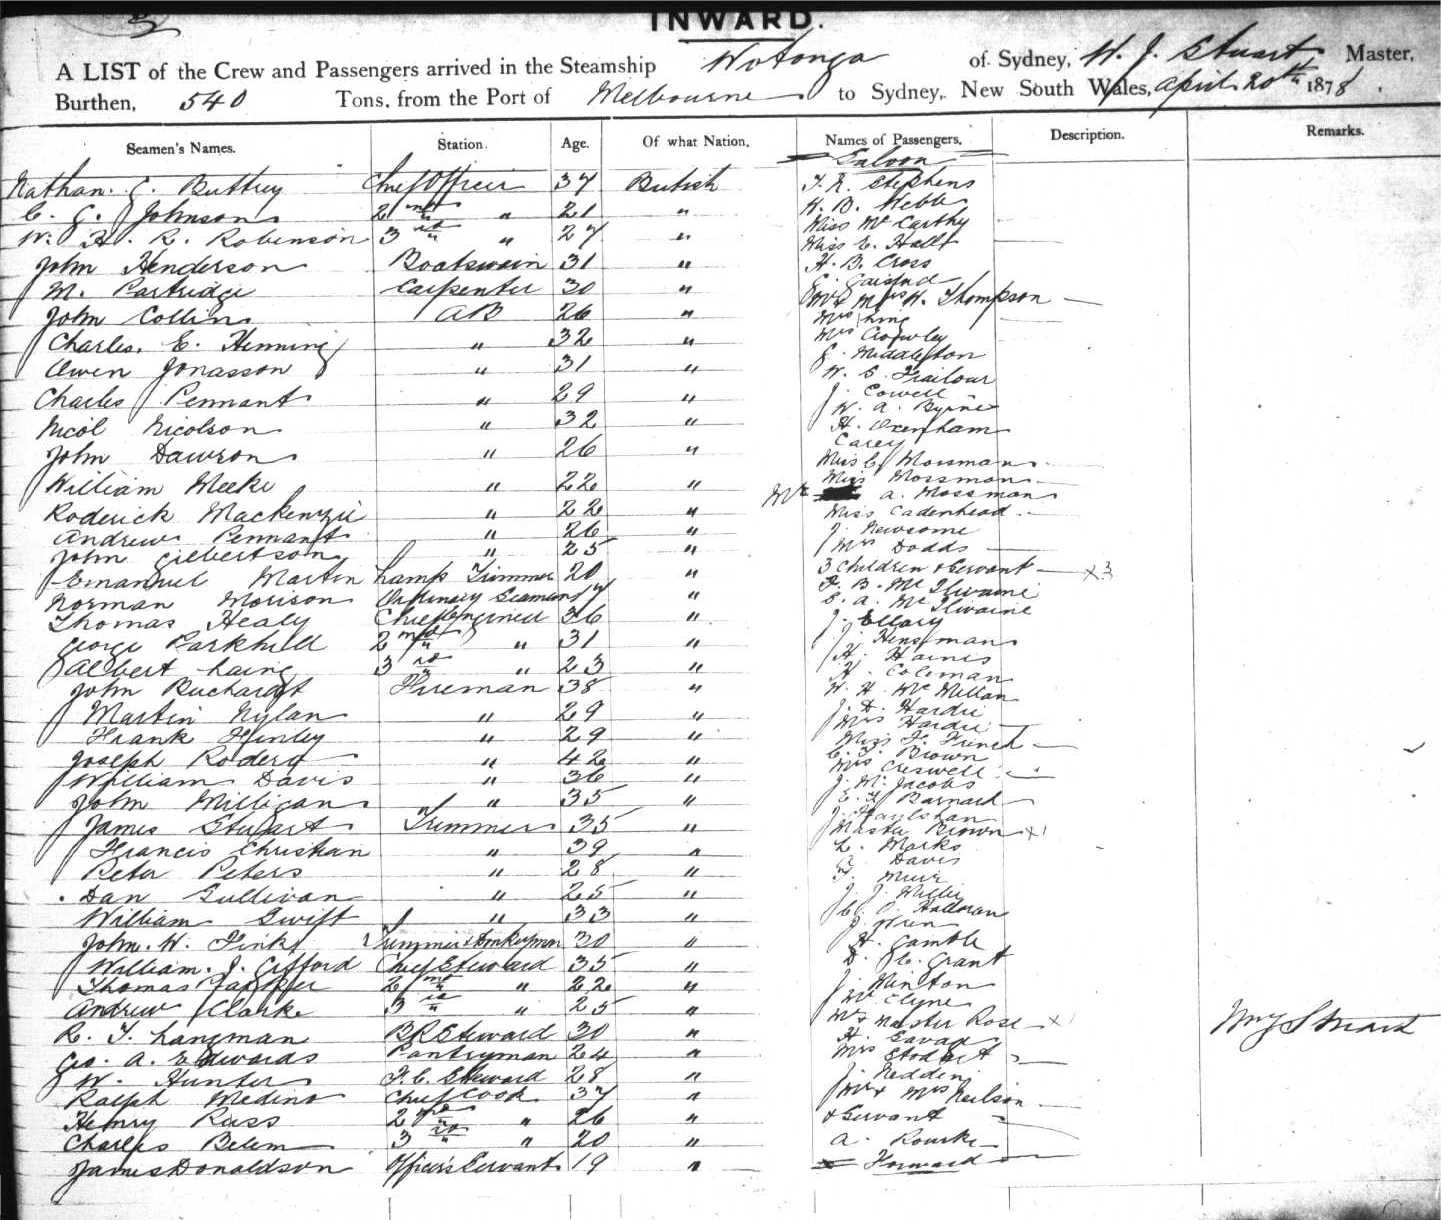 INWARD.
A LIST of the Crew and Passengers arrived in the Steamship Wotonga of Sydney, W. J. Stuart Master,
Burthen, 540 Tons, from the Port of Melbourne to Sydney, New South Wales, April 20th 1878.
Seamen's Names. Station. Age. Of what Nation. Names of Passengers. Description. Remarks.
Saloon
Nathan. G. Buttrey Chief Officer 37 British T. R. Stephens
C. G. Johnson 2nd " 21 " H. B. Webb
W. H. R. Robinson 3rd " 27 " Miss McCarthy
Miss E. Hall
John Henderson Boatswain 31 " H. B. Cross
M. Partridge Carpenter 30 "
Mr & Mrs H. Thompson
John Collins AB 26 " Mrs King
Charles. E. Henning " 32 " Mrs Crowley
Owen Jonasson " 31 " G. Middleton
W. S. Trailour
Charles Pennant " 29 " J. Cowell
W. A. Byrne
Nicol Nicolson " 32 " H. Oxenham
Carey
John Dawson " 26 " Miss C. Mossman
William Meeke " 22 " Miss Mossman
Mr A. Mossman
Roderick Mackenzie " 22 " Miss Cadenhead
Andrew Pennant " 26 " J. Newsome
John Gilbertson " 25 " Mrs Dodds
Emanuel Martin Lamp Trimmer 20 " 3 Children & Servant x3
Norman Morison Ordinary Seaman 17 " F. B. McIlwaine
C. A. McIlwaine
Thomas Healy Chief Engineer 36 " J. Ellary
George Parkhill 2nd " 31 " J. Hensman
H. Haines
Albert Laing 3rd " 23 " H. Coleman
John Buchardt Fireman 38 " W. H. McMillan
Martin Nylan " 29 " J. H. Hardie
Mrs Hardie
Frank Finley " 29 " Miss F. French
Joseph Roderg " 42 " C. F. Brown
Mrs Creswell
William Davis " 36 " J. M. Jacobs
John Milligan " 35 " C. F. Barnard
James Stewart Trimmer 35 " Master Brown x1
Francis Christian " 39 " L. Marks
Peter Peters " 28 " Davis
Muir
Dan Sullivan " 25 " J. J. Willis
William Swift " 33 "
J. Wren
John. W. Finks Trimmer & Donkeyman 30 " H. Gamble
William. J. Gifford Chief Steward 35 " D. C. Grant
Thomas Parker 2nd " 22 " J. Hinton
Andrew Clarke 3rd " 25 " Mr Clyne
R. T. Langman BR Steward 30 " Mrs & Master Rose x1 Wm J Stuart
Geo. A. Edwards Pantryman 24 " H. Savage
Mrs Stodart
W. Hunter F. C. Steward 28 " J. Reddin
Ralph Medino Chief Cook 37 " Mr & Mrs Neilson
Henry Russ 2nd " 26 " & Servant
Charles Belem 3rd " 20 " A. Rourke
James Donaldson Officer's Servant 19 " Forward